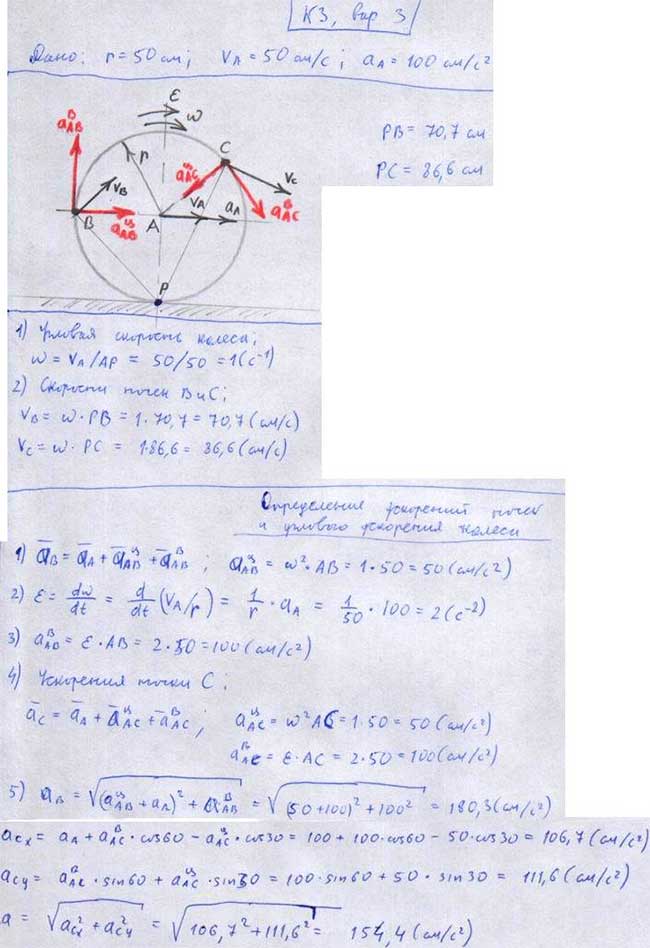 К3, вар 3
Дано: r = 50 см; VA = 50 см/с; aA = 100 см/с²
ε
ω
aᴮAB
r
C
aᶣAC
VC
VB
VA
aA
aᴮAC
B
aᶣAB
A
P
PB = 70,7 см
PC = 86,6 см
1) Угловая скорость колеса;
ω = VA/AP = 50/50 = 1(с⁻¹)
2) Скорости точек B и C;
VB = ω·PB = 1·70,7 = 70,7(см/с)
VC = ω·PC = 1·86,6 = 86,6(см/с)
Определение ускорений точек
и углового ускорения колеса
1) āB = āA + āᶣAB + āᴮAB ; aᶣAB = ω²·AB = 1·50 = 50(см/с²)
2) ε = dω/dt = d/dt (VA/r) = 1/r · aA = 1/50 · 100 = 2(с⁻²)
3) aᴮAB = ε·AB = 2·50 = 100(см/с²)
4) Ускорения точки C;
āC = āA + āᶣAC + āᴮAC ; aᶣAC = ω²AC = 1·50 = 50(см/с²)
aᴮAC = ε·AC = 2·50 = 100(см/с²)
5) aB = √(aᶣAB + aA)² + aᴮAB² = √(50+100)² + 100² = 180,3(см/с²)
aCx = aA + aᴮAC·cos60 − aᶣAC·cos30 = 100 + 100·cos60 − 50·cos30 = 106,7(см/с²)
aCy = aᴮAC·sin60 + aᶣAC·sin30 = 100·sin60 + 50·sin30 = 111,6(см/с²)
a = √a²Cx + a²Cy = √106,7² + 111,6² = 154,4(см/с²)